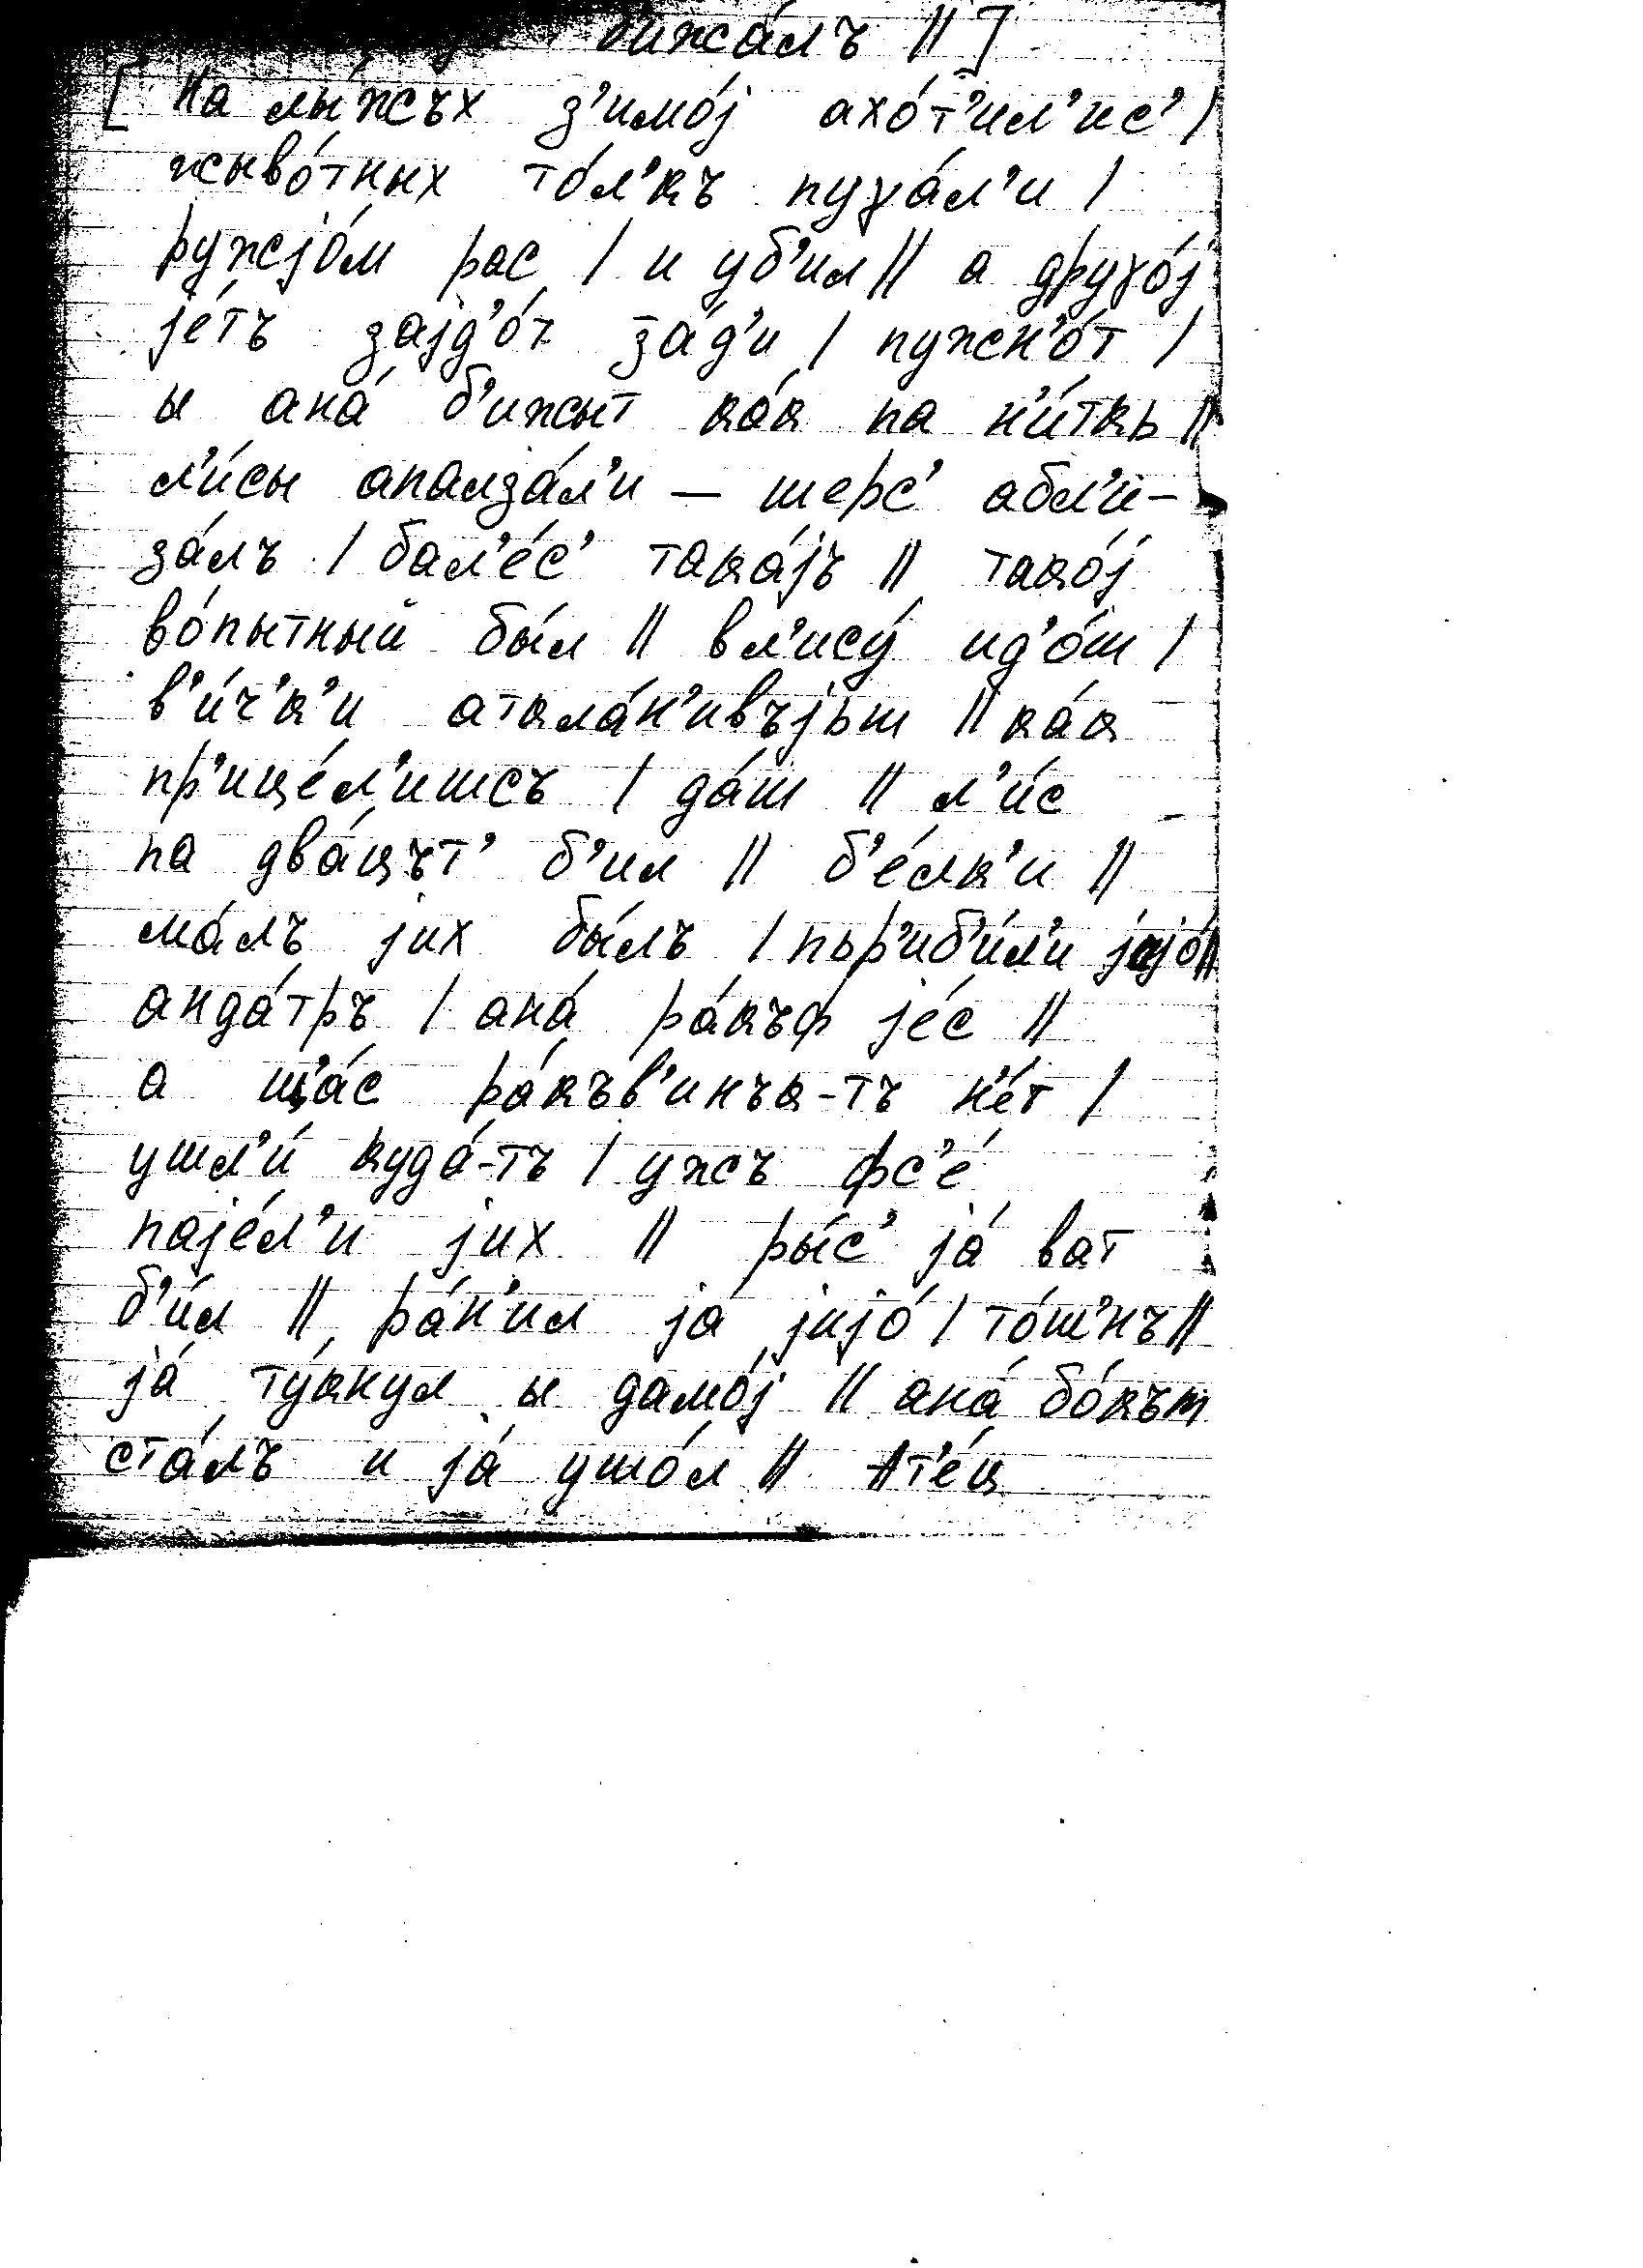 бижа́лъ || ]
[ На лы́жъх з'имо́j ахо́т'ил'ис' /
жыво́тных то́л'къ пуγа́л'и /
ружjо́м рас / и уб'ил || а друγо́j
jе́тъ заjд'о́т за́д'и / пужн'о́т /
ы ана́ б'ижыт ка́к па н'и́ткь ||
л'и́сы апалза́л'и – шерс' абл'и-
за́лъ / бал'е́с' така́jъ || тако́j
во́пытный бы́л || вл'ису́ ид'о́ш /
в'и́ч'к'и аткла́н'ивъjьш || ка́к
пр'ице́л'ишсъ / да́ш || л'и́с
па два́цът' б'ил || б'е́лк'и ||
ма́лъ jих бы́лъ / пьр'иб'и́л'и jиjо́ ||
анда́тръ / ана́ ра́къф jе́с ||
а щ'а́с ра́къв'инък-тъ н'е́т /
ушл'и́ куда́-тъ / ужъ фс'е́
паjе́л'и jих || ры́с' jа́ ват
б'и́л || ра́н'ил jа́ jиjо́ / то́ш'нъ ||
jа́ ту́кнул ы дамо́j || ана́ бо́към
ста́лъ и jа́ ушо́л || Ат'е́ц